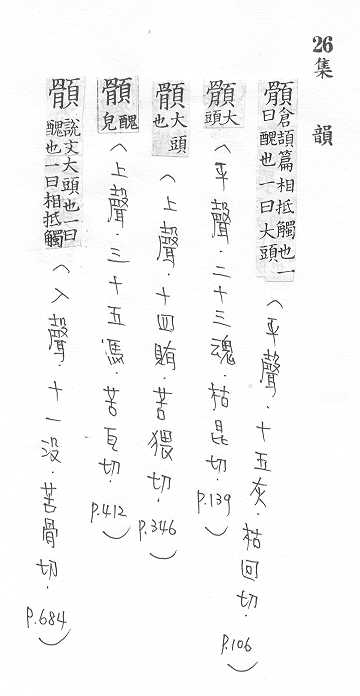 26集韻
顝倉頡篇相抵觸也一曰醜也一曰大頭(平聲.十五灰.枯回切.P.106)
顝大頭(平聲.二十三魂.枯昆切.P.139)
顝大頭也(上聲.十四賄.苦猥切.P.346)
顝醜皃(上聲.三十五馬.苦瓦切.P.412)
顝說文大頭也一曰醜也一曰相抵觸(入聲.十一沒.苦骨切.P.684)